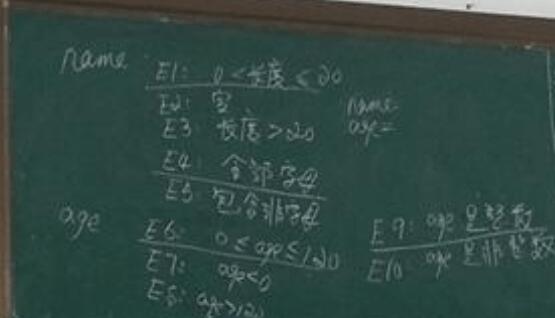 name
E1: 0<长度≤20
E2: 空
E3: 长度>20
name
age=
E4: 全部字母
E5: 包含非字母
age
E6: 0≤age≤120
E7: age<0
E8: age>120
E9: age是整数
E10: age是非整数